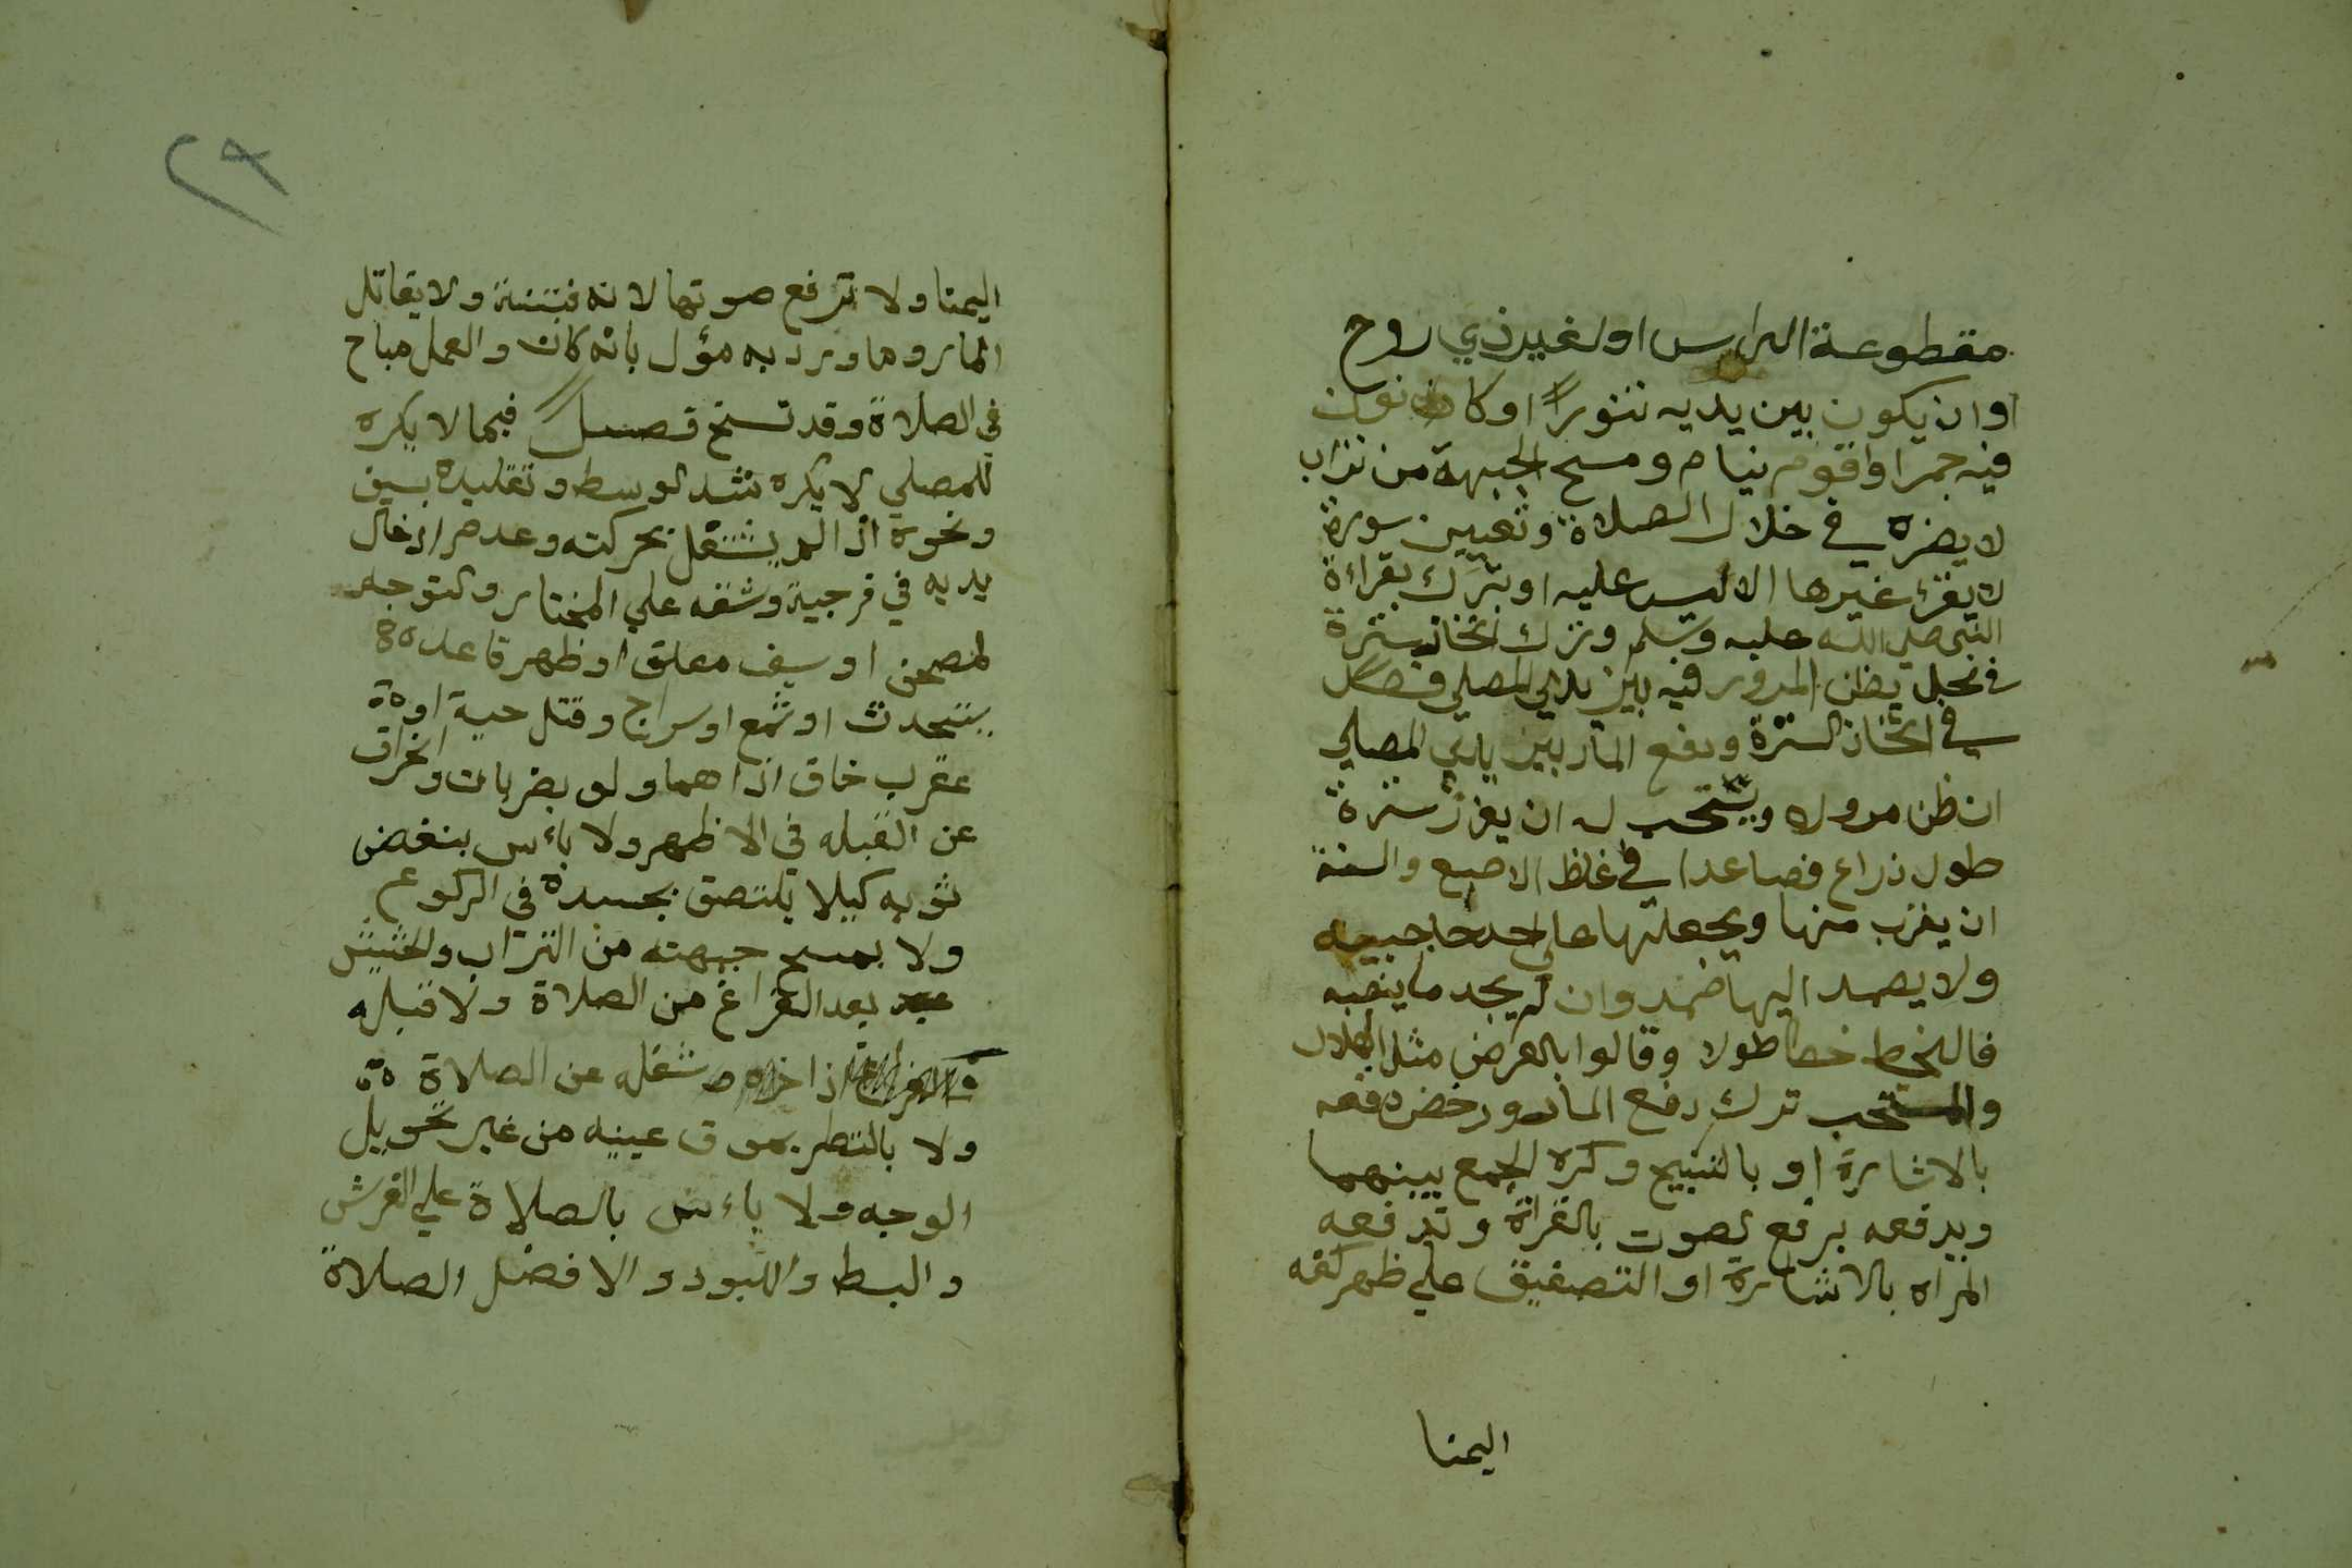 مقطوعة الراس او لغير ذي روح
او ان يكون بين يديه تنورا او كانون
فيه جمرا وا قوم نيام ومسح الجبهة من تراب
لا يضره في خلال الصلاة وتعيين سورة
لا يقرء غيرها الا ليسر عليه او تبرك بقراءة
النبي صلي الله عليه وسلم وترك اتخاذ سترة
في محل يظن المرور فيه بين يدي المصلي فصل
في اتخاذ السترة ودفع المار بين يدي المصلي
ان ظن مروره ويستحب له ان يغرز سترة
طول ذراع فصاعدا في غلظ الاصبع والسنة
ان يقرب منها ويجعلها علي احد حاجبيه
ولا يصمد اليها ضمد وان لم يجد ما ينصبه
فاليخط خطا طولا وقالوا بالعرض مثل الهلال
والمستحب ترك دفع المار ورخض دفعه
بالاشارة او بالتسبيح وكره الجمع بينهما
ويدفعه برفع لصوت بالقراة وتدفعه
المراه بالاشارة او التصفيق علي ظهر كفه
اليمنا
٢٩
اليمنا ولا ترفع صوتها لانه فتنة ولا يقاتل
المار وما ورد به مؤل بانه كان والعمل مباح
في الصلاة وقد نسخ فصل فيما لا يكره
للمصلي لا يكره شد الوسط وتقليده بسيف
ونحوه اذا لم يشتغل بحركته وعدم ادخال
يديه في فرجية وشقه علي المختار ولتوجه
لمصحف او سيف معلق او ظهر قاعد
يتحدث او شمع او سراج وقتل حية او
عقرب خاف اذاهما ولو بضربات وانحراف
عن القبله في الاظهر ولا باءس بنغض
ثوبه كيلا يلتصق بجسده في الركوع
ولا بمسح جبهته من التراب ولحشيش
بعد الفراغ من الصلاة ولا قبله
اذا ضره او شغله عن الصلاة
ولا بالنظر بموق عينيه من غير تحويل
الوجه ولا باءس بالصلاة علي الفرش
والبسط واللبود والافضل الصلاة